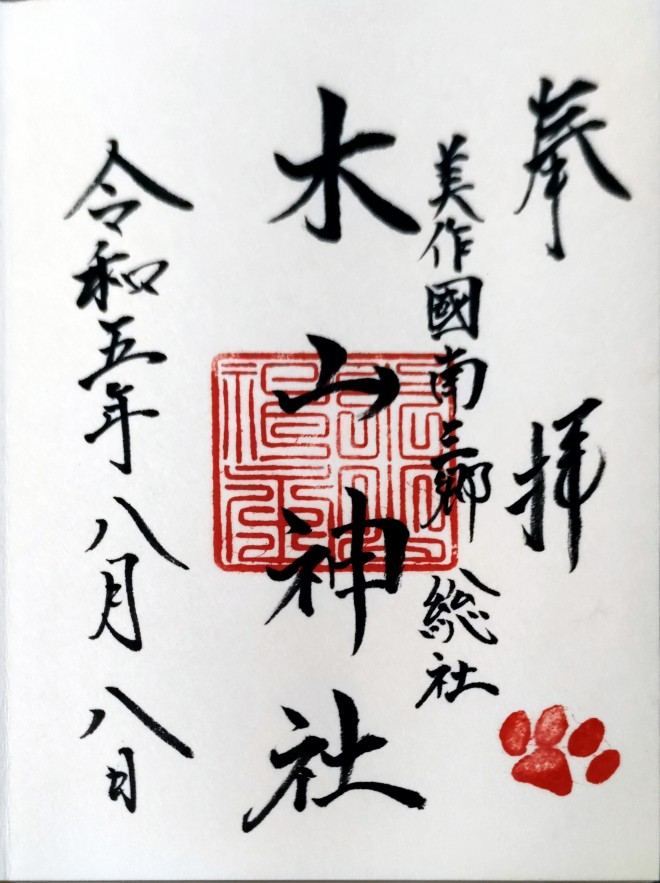 奉拝
美作國南三郷総社
木山神社
令和五年八月八日